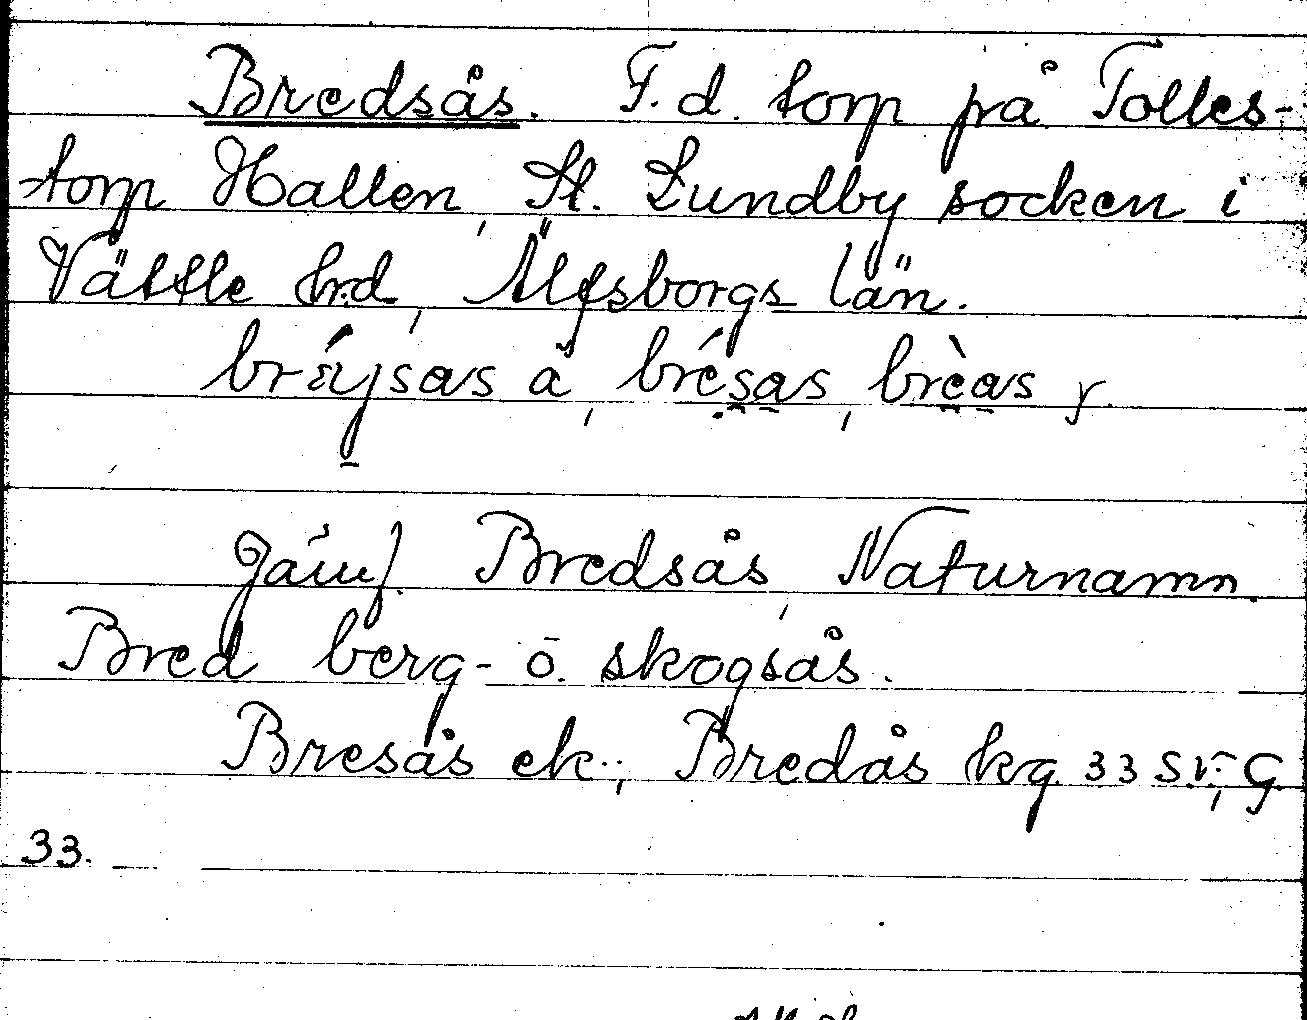 Bredsås. F. d. torp på Tolles-
torp Hallen, St. Lundby socken i
Vättle hrd, Älfsborgs län.
bräjsas ä, brésas, brèas y.
Jämf. Bredsås, Naturnamn.
Bred berg- o. skogsås.
Bresås ek.; Bredås kg 33 s.v.; G.
33.